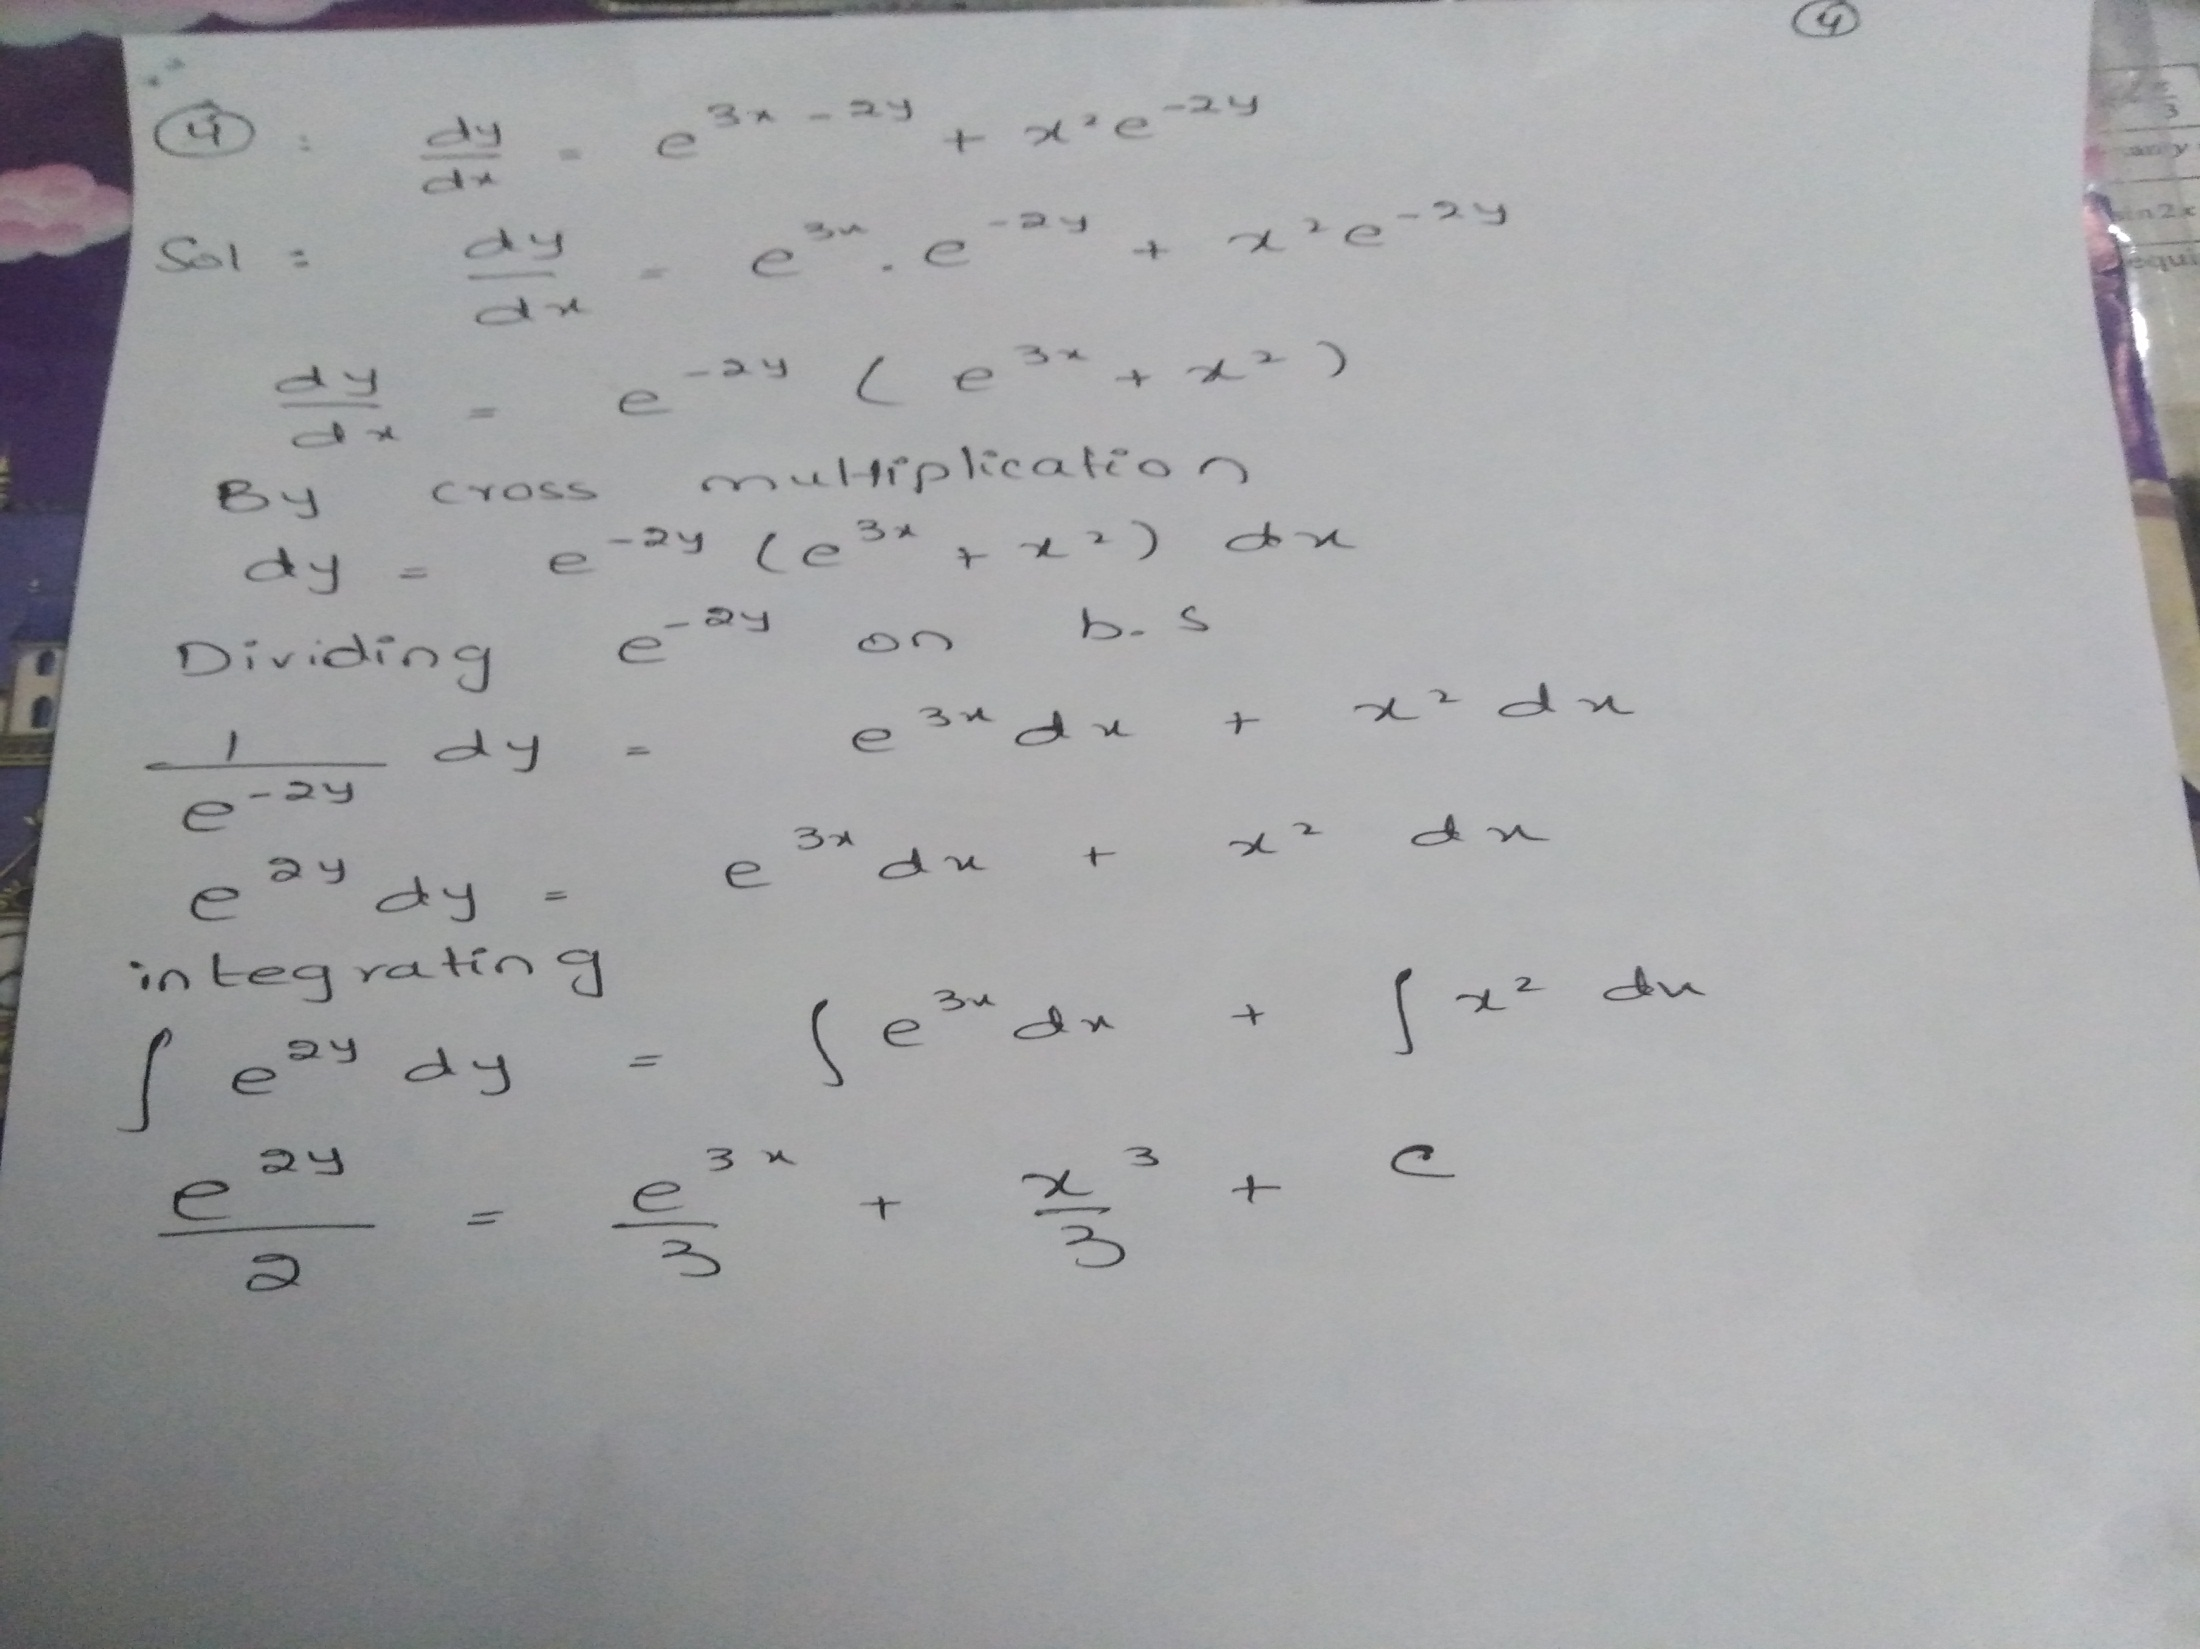 ④
④ : dy/dx = e^{3x-2y} + x²e^{-2y}
Sol : dy/dx = e^{3x} . e^{-2y} + x²e^{-2y}
dy/dx = e^{-2y} (e^{3x} + x²)
By cross multiplication
dy = e^{-2y} (e^{3x} + x²) dx
Dividing e^{-2y} on b.s
1/e^{-2y} dy = e^{3x} dx + x² dx
e^{2y} dy = e^{3x} dx + x² dx
integrating
∫ e^{2y} dy = ∫ e^{3x} dx + ∫ x² dx
e^{2y}/2 = e^{3x}/3 + x³/3 + c
sin2x
equi